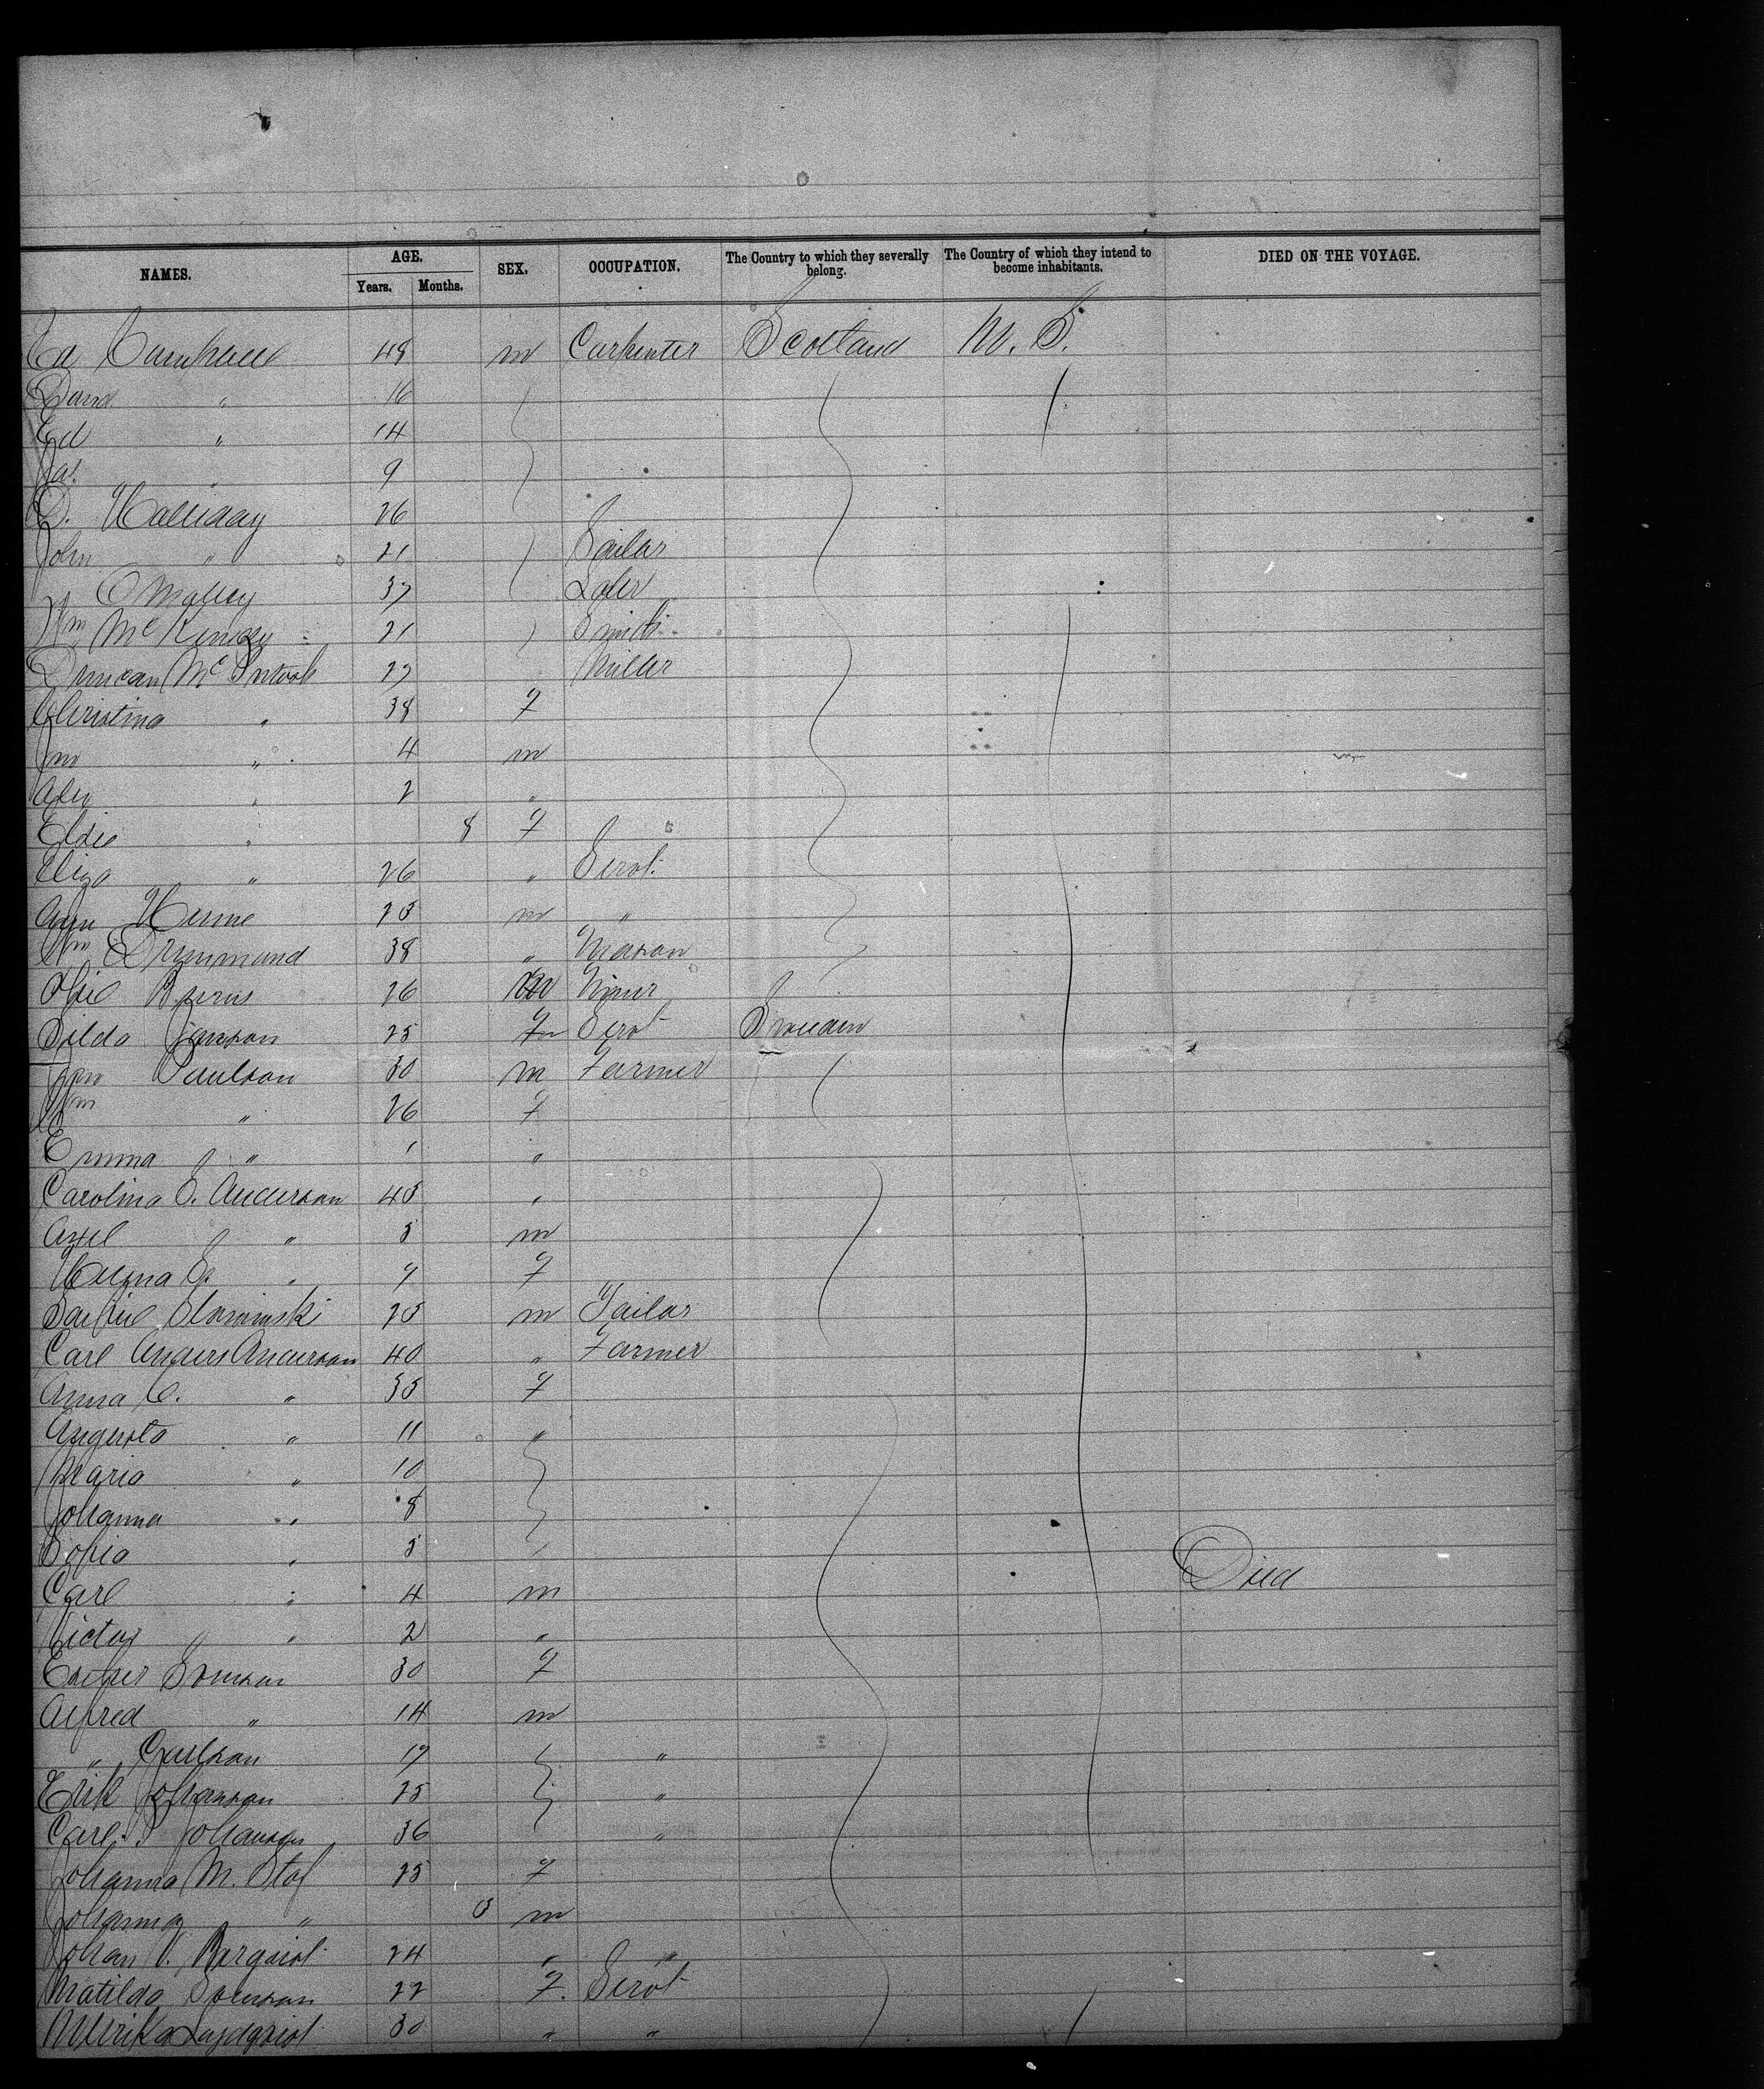 NAMES. AGE. SEX. OCCUPATION. The Country to which they severally belong. The Country of which they intend to become inhabitants. DIED ON THE VOYAGE.
Years. Months.
Ed Campbell 48 m Carpenter Scotland U. S.
David " 16
Ed " 14
Jas. " 9
D. Halliday 26
John " 21 Sailor
O'Malley 37
Wm McKinley 21 Smith
Duncan McIntosh 27 Miller
Christina " 38 F
Jno " 4 m
Alex " 2 "
Elsie " 8 F
Eliza " 26 " Servt.
Hume 25 m "
Wm Drummond 38 " Mason
Burns 26 m Miner
Hilda Janson 25 F Servt Sweden
Jno Paulson 30 m Farmer
" 26 F
Emma " 1 "
Carolina S. Anderson 45 "
Axel " 5 m
Helena S. " 9 F
25 m Tailor
Carl Anders Anderson 40 " Farmer
Anna C. " 35 F
Augusta " 11 "
Maria " 10
Johanna " 8
Sofia " 5
Carl " 4 m Died
Victor " 2 "
Swenson 30 F
Alfred " 14 m
" Carlson 17 "
Erik Johanson 25 "
Carl Johanson 36 "
Johanna M. Staf 25 F
" m
Johan V. Bergquist 24 " "
Matilda Swenson 22 F. Servt
Ulrika Lindqvist 30 " "